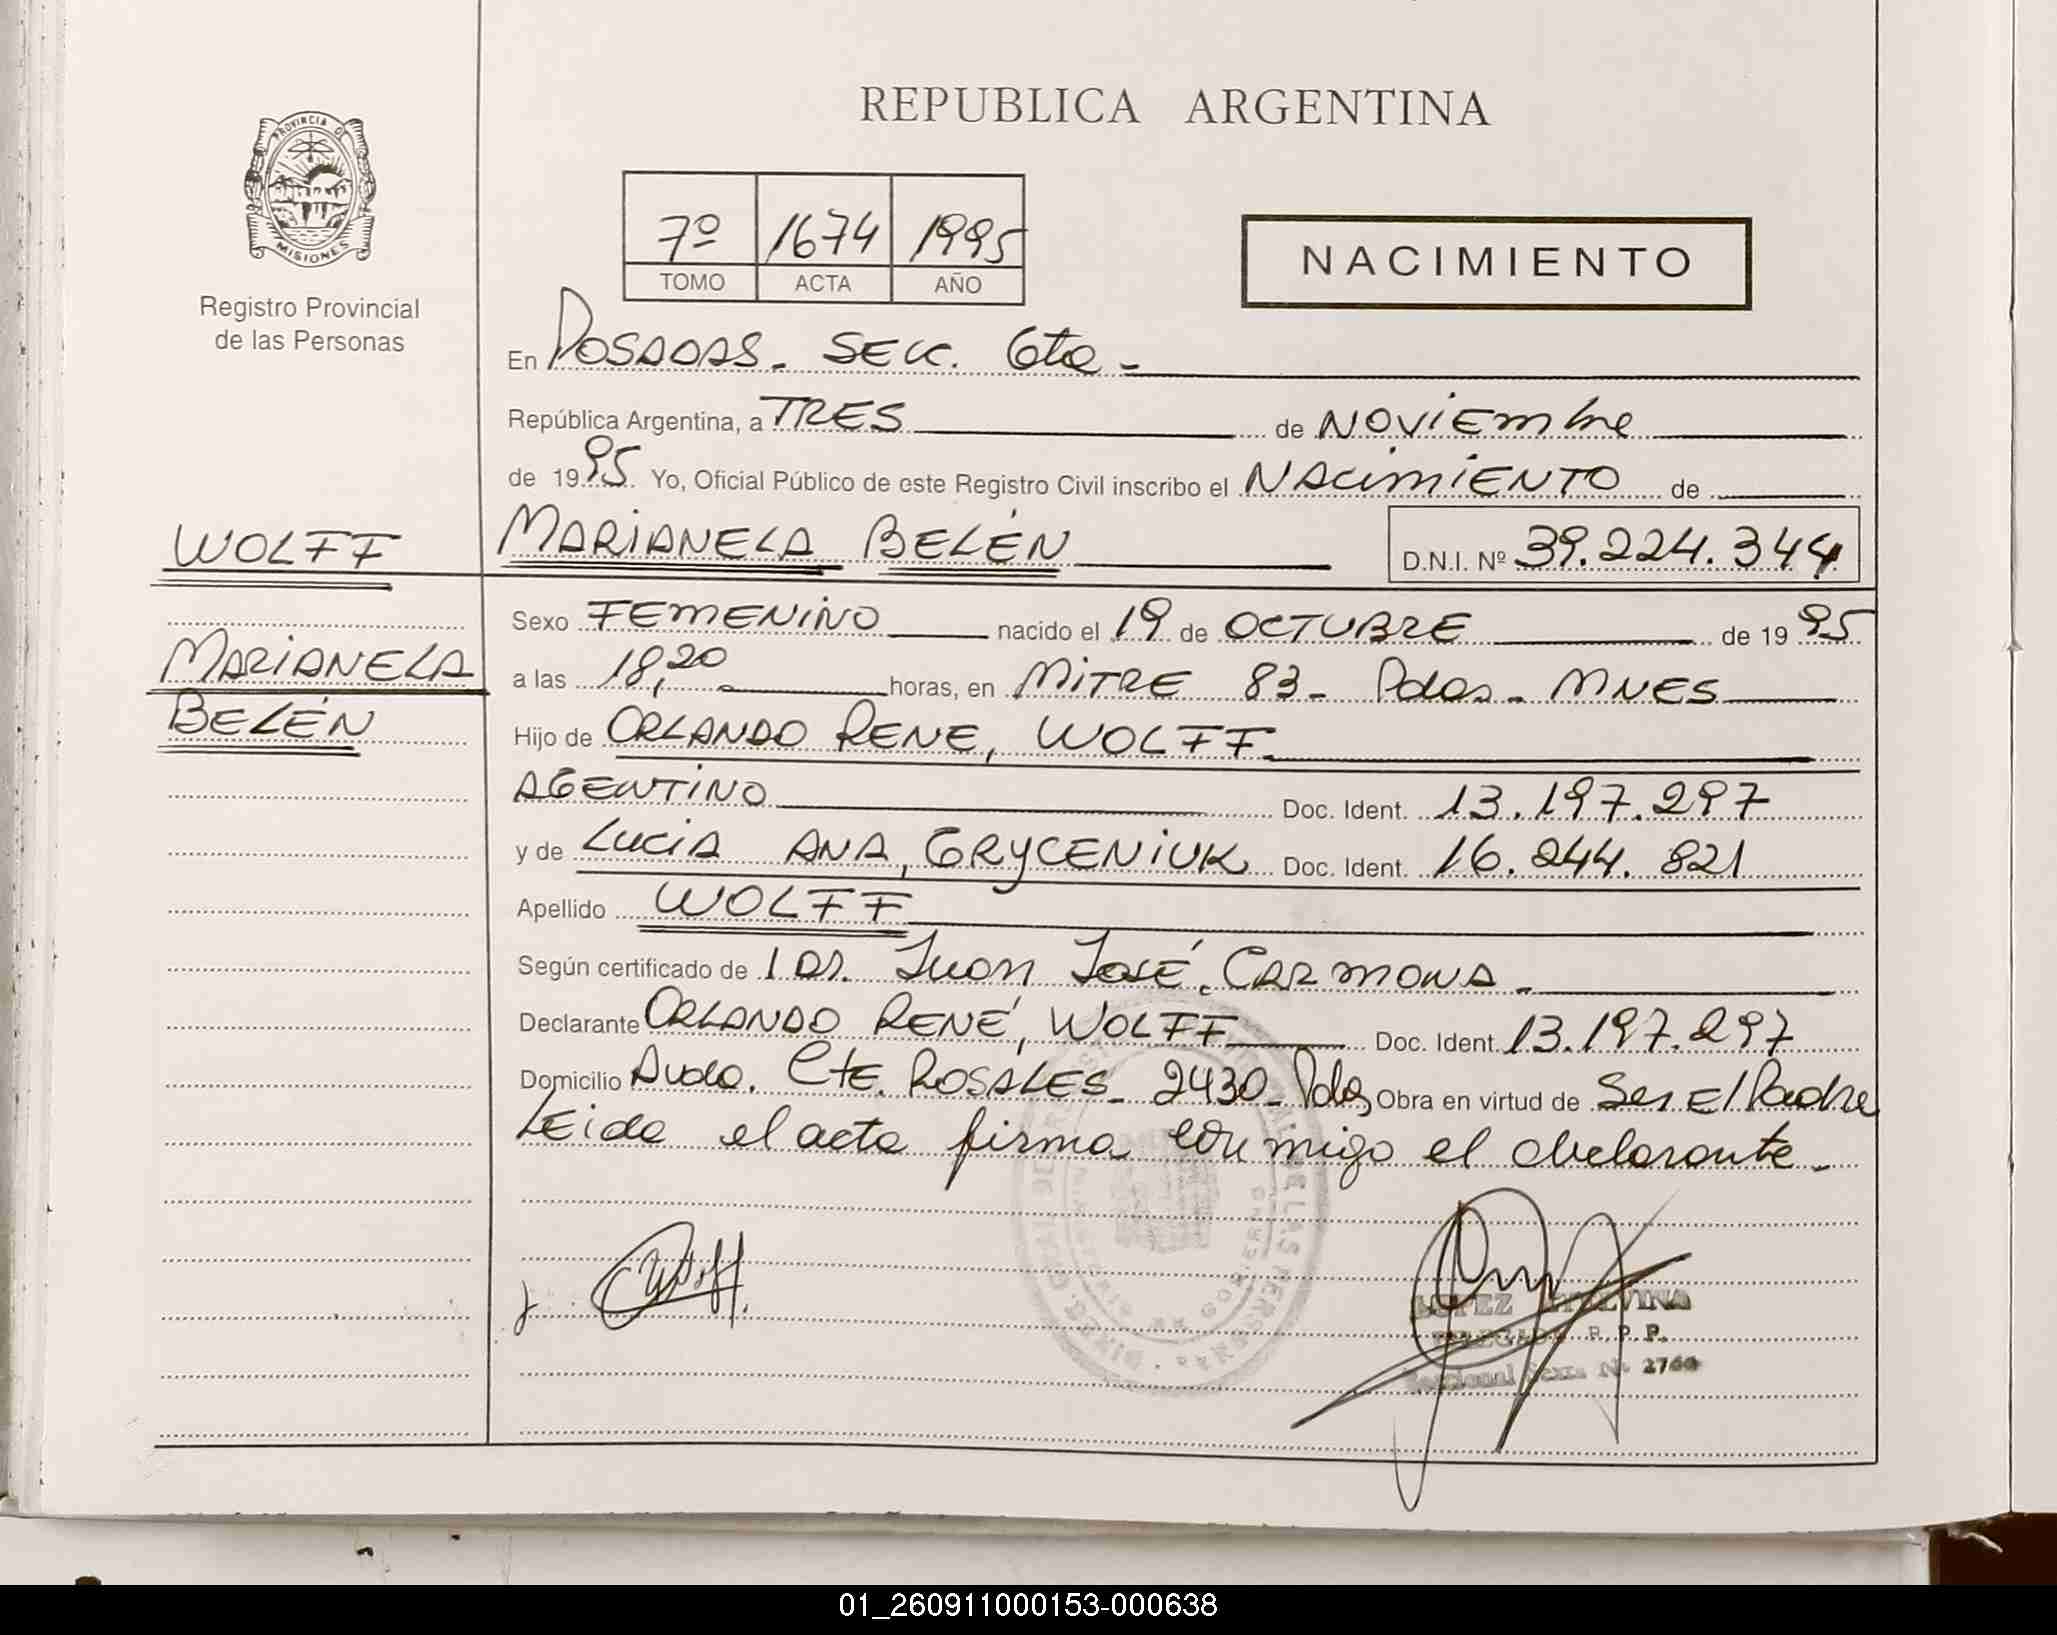 REPUBLICA ARGENTINA
PROVINCIA D
MISIONES
Registro Provincial
de las Personas
7º 1674 1995
TOMO ACTA AÑO
NACIMIENTO
En POSADAS - SECC. 6ta -
República Argentina, a TRES de NOViEmbre
de 1995 Yo, Oficial Público de este Registro Civil inscribo el NAcimiENTO de
WOLFF
MARiANELA BELÉN D.N.I. Nº 39.224.344
Sexo FEMENiNO nacido el 19 de OCTUBRE de 1995
MARiANELA
a las 18,20 horas, en MiTRE 83 - Pdas - MNES
BELÉN
Hijo de ORLANDO RENE, WOLFF
AGENTiNO Doc. Ident. 13.197.297
y de LuciA ANA, GRYCENiUK Doc. Ident. 16.244.821
Apellido WOLFF
Según certificado de 1 Dr. Juan JoSÉ CARmONA -
Declarante ORLANDO RENÉ, WOLFF Doc. Ident. 13.197.297
Domicilio Avda. Cte. ROSALES - 2430 - Pdas Obra en virtud de Ser El Padre
LEida el acta firma conmigo el declarante -
LOPEZ ETELVINA
DELEGADA R. P. P.
Nº 2764
01_260911000153-000638